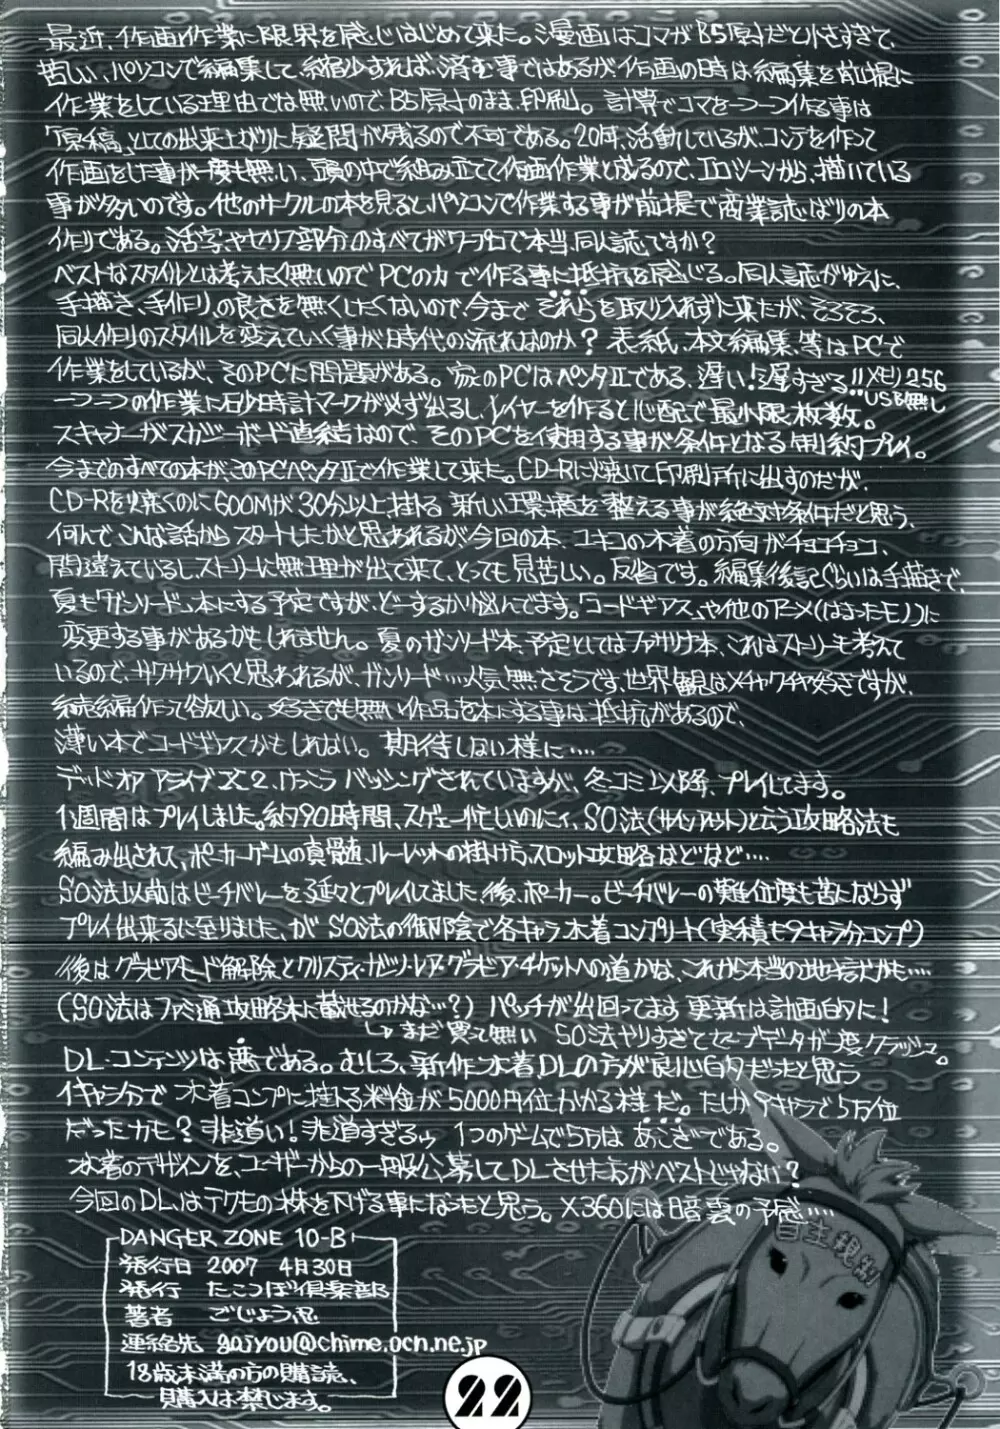 最近、作画作業に限界を感じはじめて来た。漫画はコマがB5原寸だと小さすぎて、
苦しい、パソコンで編集して、縮少すれば済む事ではあるが、作画の時は編集を前提に
作業をしている理由では無いのでB5原寸のまま、印刷。計算でコマを一つ一つ作る事は
「原稿」としての出来上がりに疑問が残るので不可である。20年、活動しているが、コンテを作って
作画をした事が一度も無い、頭の中で組み立てて作画作業と成るので、エロシーンから、描いている
事が多いのです。他のサークルの本を見ると、パソコンで作業する事が前提で商業誌ばりの本
作りである。活字やセリフ部分のすべてがワープロで本当、同人誌ですか?
ベストなスタイルとは考えたく無いのでPCの力で作る事に抵抗を感じる。同人誌がゆえに、
手描き、手作りの良さを無くしたくないので、今までそれらを取り入れずに来たが、そろそろ、
同人作りのスタイルを変えていく事が時代の流れなのか?表紙、本文編集、等はPCで
作業をしているが、そのPCに問題がある。家のPCはペンタIIである、遅い!遅すぎる!!メモリ256
USB無し
一つ一つの作業に砂時計マークが必ず出るし、レイヤーを作ると心配で最小限枚数。
スキャナーがスカジーボード直結なので、そのPCを使用する事が条件となる制約プレイ。
今までのすべての本が、このPCペンタIIで作業して来た。CD-Rに焼いて印刷所に出すのだが、
CD-Rを焼くのに600Mが30分以上掛る 新しい環境を整える事が絶対条件だと思う、
何んで、こんな話からスタートしたかと思われるが今回の本、ユキコの水着の方向がチョコチョコ、
間違えているし、ストーリーに無理が出て来て、とっても見苦しい。反省です。編集後記ぐらいは手描きで、
夏も「ガンソード」本にする予定ですが、どーするか悩んでます。「コードギアス」や他のアニメ(はまったモノ)に
変更する事があるかもしれません。夏のガンソード本、予定としてはファサリナ本、これはストーリーも考えて
いるので、サクサクいくと思われるが、ガンソード…人気無さそうです、世界観はメチャクチャ好きですが、
続編作って欲しい。好きでも無い作品を本にする事は抵抗があるので、
薄い本でコードギアスかもしれない。期待しない様に….
デッドオアアライブX2、けっこうバッシングされていますが、冬コミ以降、プレイしてます。
1週間はプレイしました。約90時間、スゲェー忙しいのにィ、SO法(サインアウト)と云う攻略法も
編み出されて、ポーカーゲームの真髄、ルーレットの掛け方、スロット攻略などなど….
SO法以前はビーチバレーを延々とプレイしてました、後、ポーカー。ビーチバレーの難位度も苦にならず
プレイ出来るに至りました、が SO法の御陰で各キャラ水着コンプリート(実績も9キャラ分コンプ)
後はグラビアモード解除とクリスティ・ゼツ・レア・グラビア・チケットへの道かな、これから本当の地獄かも….
(SO法はファミ通攻略本に載せるのかな…?) パッチが出回ってます 更新は計画的に!
↳まだ買って無い SO法ヤリすぎてセーブデータが一度クラッシュ。
DL・コンテンツは悪である。むしろ、新作水着DLの方が良心的だったと思う
1キャラ分で水着コンプに掛る料金が5000円位かかる様だ。たしか9キャラで5万位
だったカモ?非道い!非道すぎるゥ 1つのゲームで5万はあこぎである。
水着のデザインを、ユーザーからの一般公募してDLさせた方がベストじゃない?
今回のDLはテクモの株を下げる事になったと思う。X360には暗雲の予感….
DANGER ZONE 10-B
発行日 2007 4月30日
発行 たこつぼ倶楽部
著者 ごじょう忍
連絡先 gojyou@chime.ocn.ne.jp
18歳未満の方の購読、
購入は禁じます。
自主規制
22